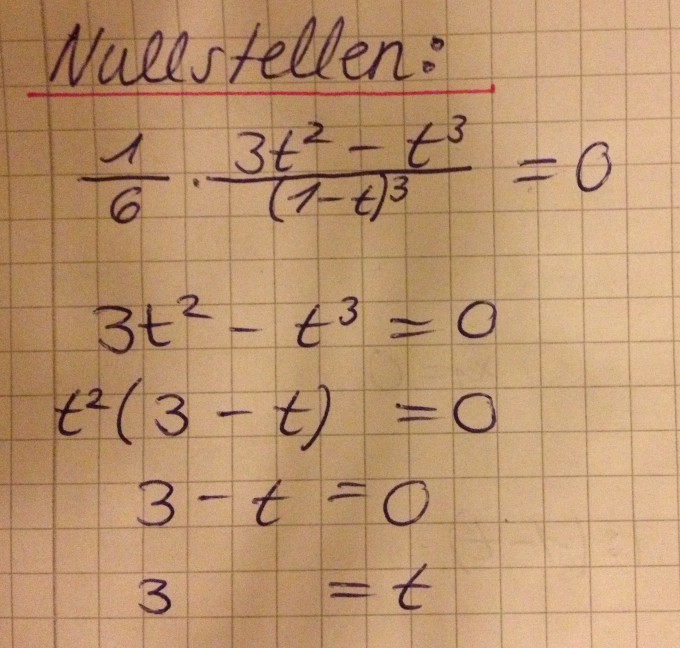 Nullstellen:
1/6 · (3t² - t³)/(1-t)³ = 0
3t² - t³ = 0
t²(3 - t) = 0
3 - t = 0
3 = t